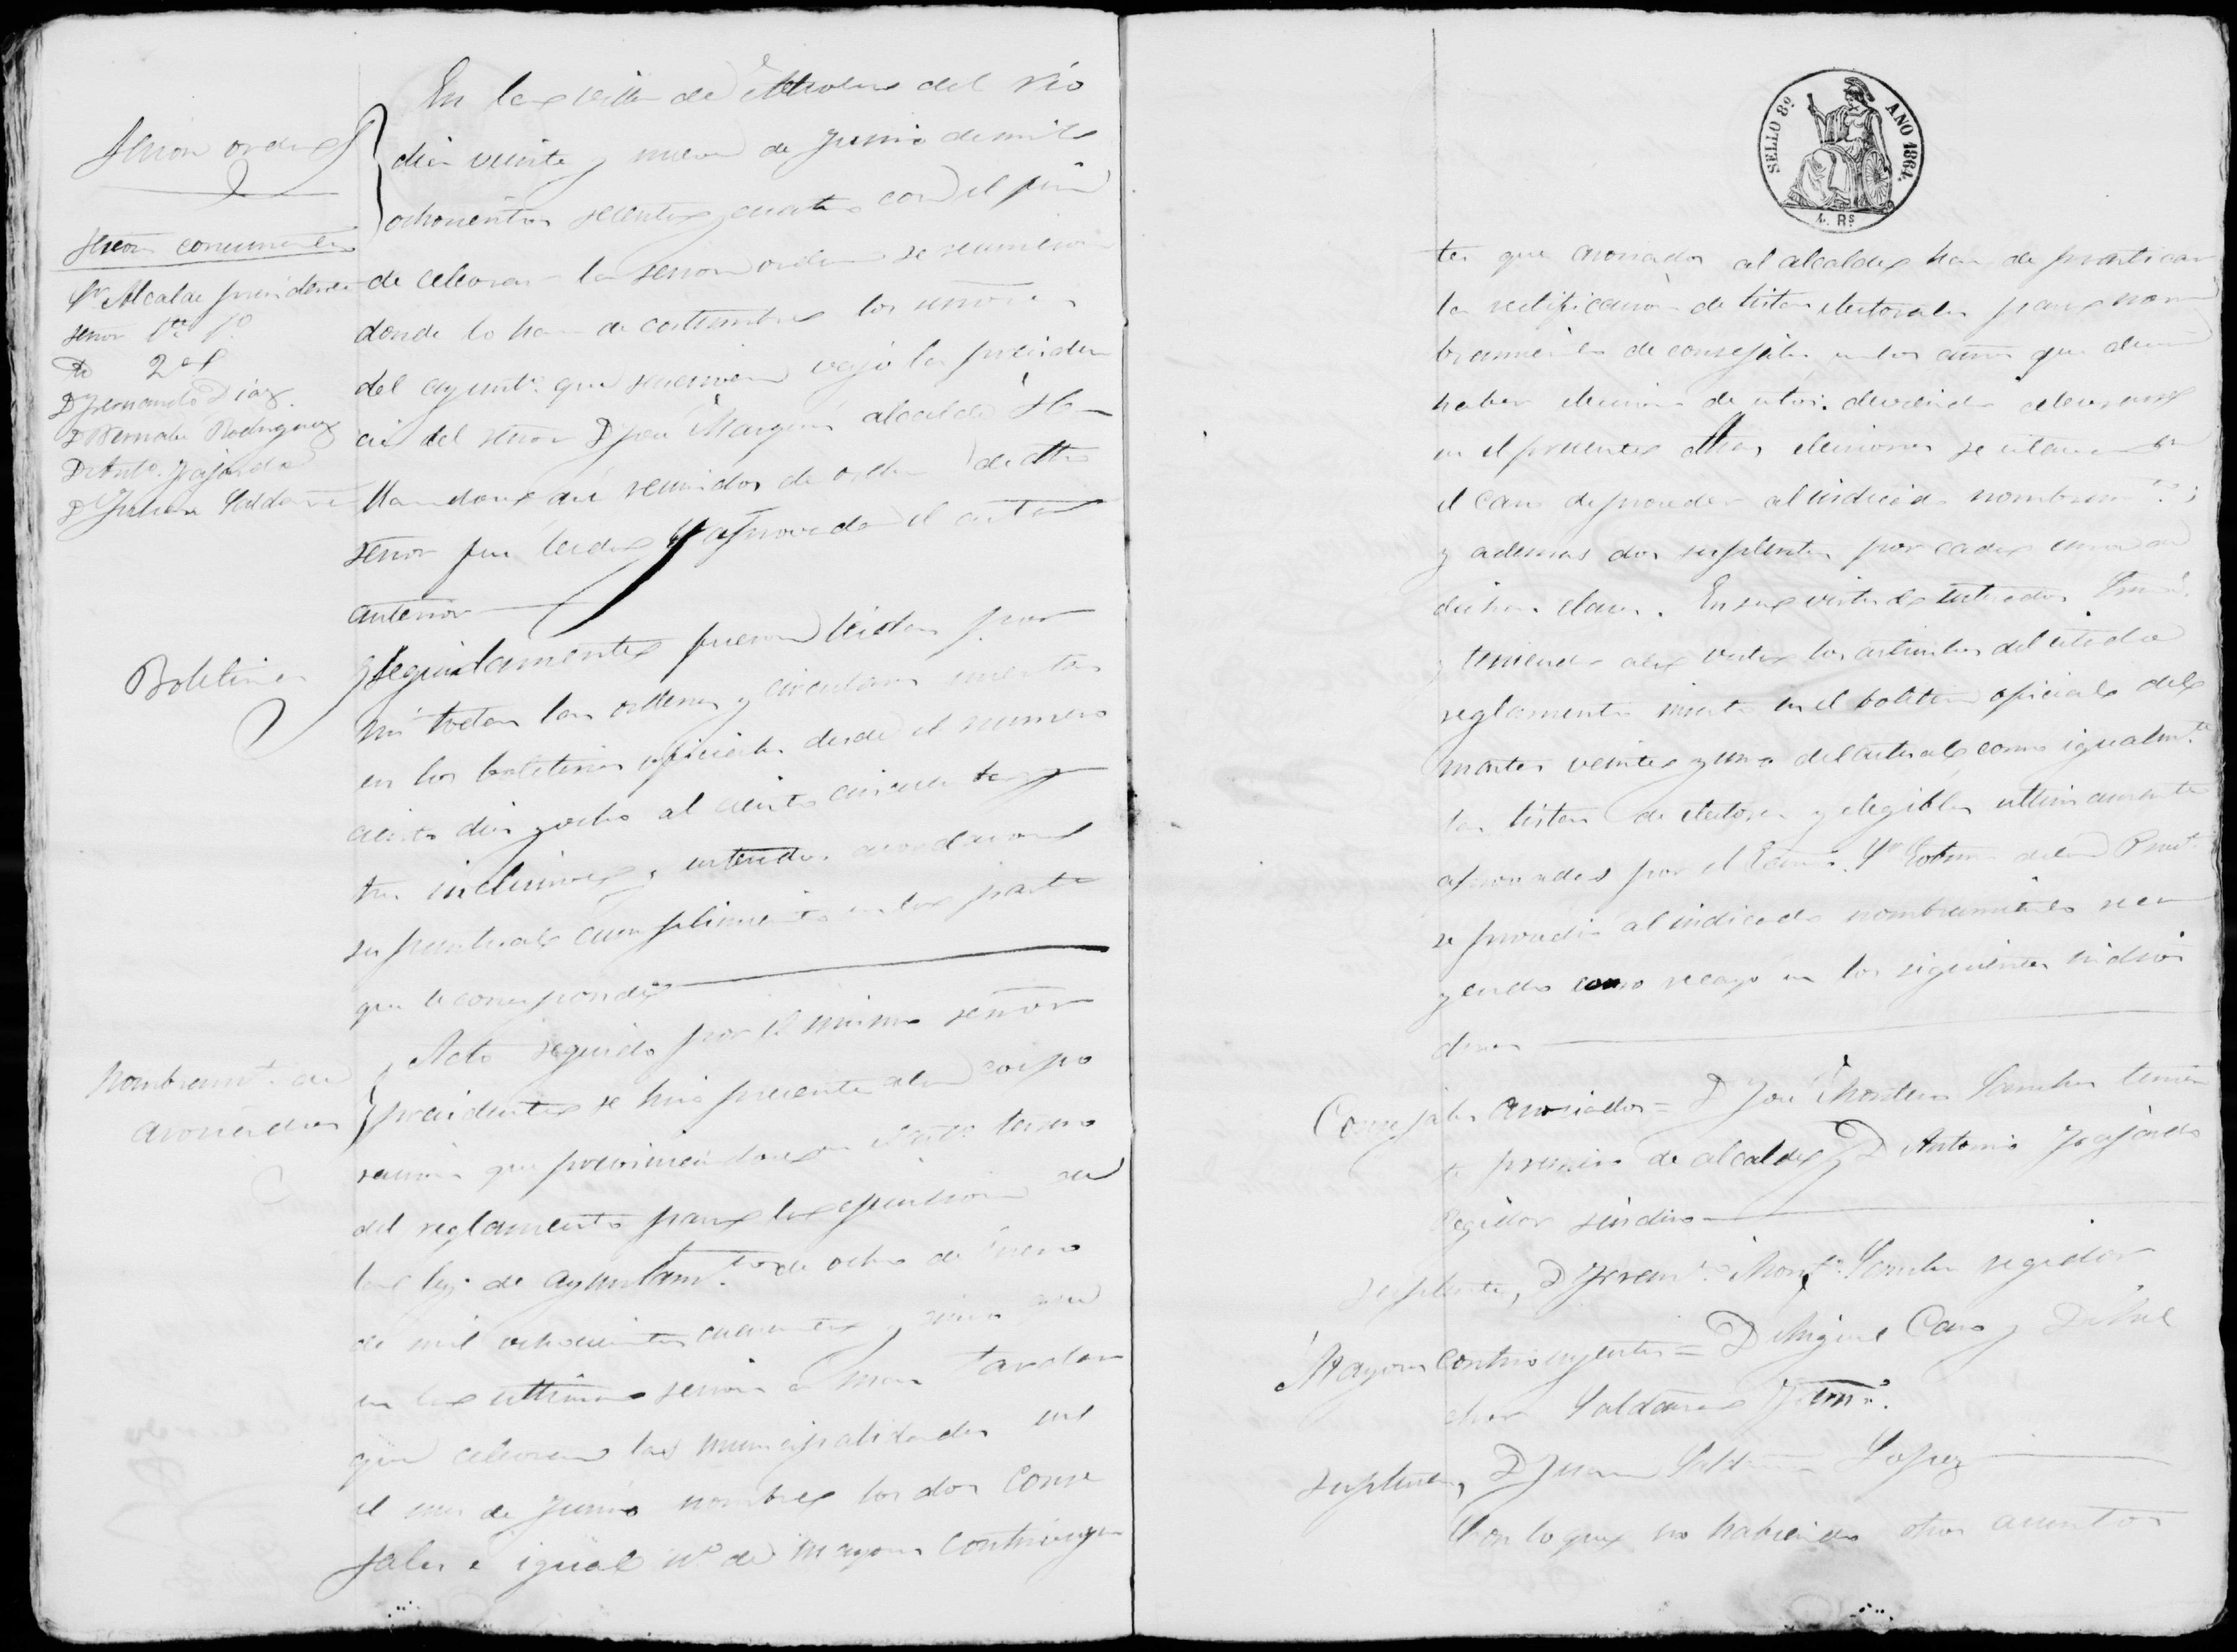 Sesion ordina
Señores concurrentes
Sr Alcalde presidente
Señor Tte 1º
Dº 2º
D Fernando Diaz
D Bernabe Rodriguez
D Antº Fajardo
D Julian Saldaña
En la villa de del rio
dia veinte y nueve de Junio de mil
ochocientos sesenta y cuatro con el fin
de celebrar la sesion ordina se reunieron
donde lo han de costumbre los señores
del ayuntº que suscriven vajo la presiden
cia del señor D Jose alcalde
llandose asi reunidos de orden de dho
señor fue leida y aprovada el acta
anterior
Boletines
Seguidamente fueron leidas por
mi todas las ordenes y circulares insertas
en los boletines oficiales desde el numero
ciento diez y ocho al ciento cincuenta y
tres inclusives, enterados acordaron
su puntual cumplimiento en la parte
que le corresponde
Nombramtº de
asociados
Acto seguido por el mismo señor
presidente se hizo presente a la corpo
racion que previniendose en el artº
del reglamento para la ejecucion de
la ley de ayuntamtos de ocho de Enero
de mil ochocientos cuarenta y cinco que
en la ultima sesion a mas tardar
que celebren las municipalidades en
el mes de Junio nombre los dos Conce
jales e igual nº de mayores Contribuyen
SELLO 8º AÑO 1864.
4. Rs
tes que asociados al alcalde han de practicar
la rectificacion de listas electorales para nom
bramiento de concejales en los años que deva
haber eleccion de estos. deviendo celebrarse
en el presente dhas elecciones se estava en
el caso de proceder al indicado nombramtº;
y ademas dos suplentes por cada una de
dichas clases. En su virtud enterados
y teniendo a la vista los articulos del citado
reglamento inserto en el boletin oficial del
martes veinte y uno del actual como igualmte
las listas de electores y elegibles ultimamente
aprovadas por el Sr Gobernador de la
se procedio al indicado nombramiento reca
yendo como recayo en los siguientes individ
duos
Concejales asociados = D Jose Montero Sanchez tenien
te primero de alcalde y D Antonio Fajardo
Regidor sindico
Suplente, D Franº Montº Sanchez regidor
Mayores Contribuyentes = D Miguel Cano y D Mel
chor Saldaña
Suplente, D Juan Saldaña Lopez
Con lo que no habiendo otros asuntos